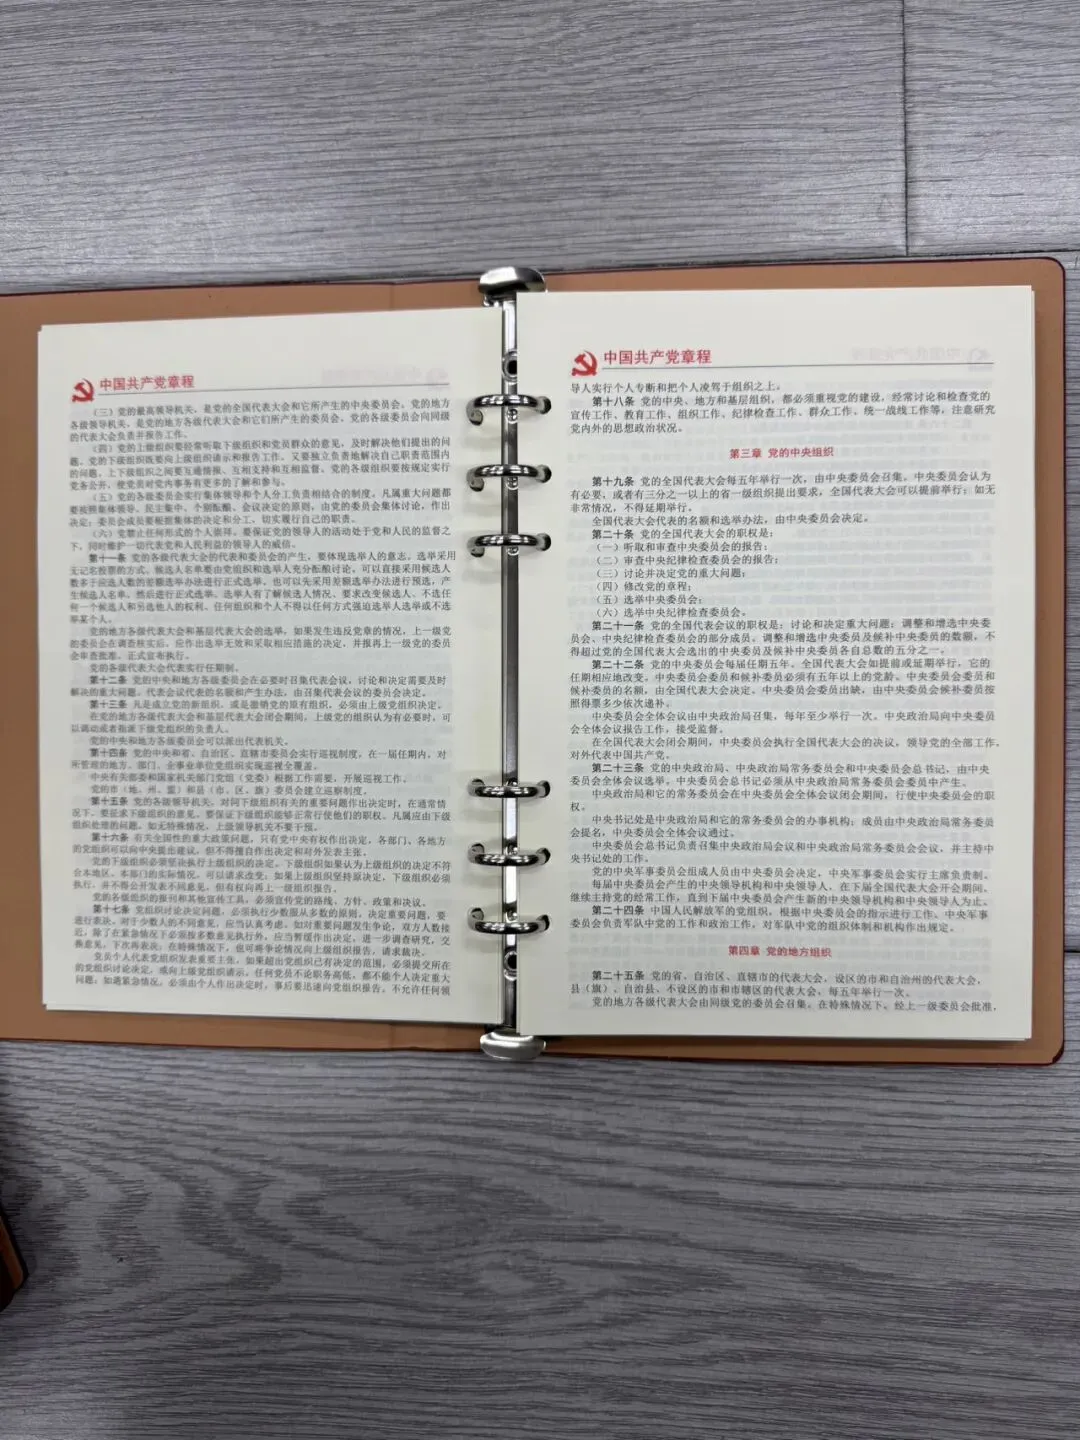 中国共产党章程
（三）党的最高领导机关，是党的全国代表大会和它所产生的中央委员会。党的地方
各级领导机关，是党的地方各级代表大会和它们所产生的委员会。党的各级委员会向同级
的代表大会负责并报告工作。
（四）党的上级组织要经常听取下级组织和党员群众的意见，及时解决他们提出的问
题。党的下级组织既要向上级组织请示和报告工作，又要独立负责地解决自己职责范围内
的问题。上下级组织之间要互通情报、互相支持和互相监督。党的各级组织要按规定实行
党务公开，使党员对党内事务有更多的了解和参与。
（五）党的各级委员会实行集体领导和个人分工负责相结合的制度。凡属重大问题都
要按照集体领导、民主集中、个别酝酿、会议决定的原则，由党的委员会集体讨论，作出
决定；委员会成员要根据集体的决定和分工，切实履行自己的职责。
（六）党禁止任何形式的个人崇拜。要保证党的领导人的活动处于党和人民的监督之
下，同时维护一切代表党和人民利益的领导人的威信。
第十一条 党的各级代表大会的代表和委员会的产生，要体现选举人的意志。选举采用
无记名投票的方式。候选人名单要由党组织和选举人充分酝酿讨论。可以直接采用候选人
数多于应选人数的差额选举办法进行正式选举。也可以先采用差额选举办法进行预选，产
生候选人名单，然后进行正式选举。选举人有了解候选人情况、要求改变候选人、不选任
何一个候选人和另选他人的权利。任何组织和个人不得以任何方式强迫选举人选举或不选
举某个人。
党的地方各级代表大会和基层代表大会的选举，如果发生违反党章的情况，上一级党
的委员会在调查核实后，应作出选举无效和采取相应措施的决定，并报再上一级党的委员
会审查批准，正式宣布执行。
党的各级代表大会代表实行任期制。
第十二条 党的中央和地方各级委员会在必要时召集代表会议，讨论和决定需要及时
解决的重大问题。代表会议代表的名额和产生办法，由召集代表会议的委员会决定。
第十三条 凡是成立党的新组织，或是撤销党的原有组织，必须由上级党组织决定。
在党的地方各级代表大会和基层代表大会闭会期间，上级党的组织认为有必要时，可
以调动或者指派下级党组织的负责人。
党的中央和地方各级委员会可以派出代表机关。
第十四条 党的中央和省、自治区、直辖市委员会实行巡视制度，在一届任期内，对
所管理的地方、部门、企事业单位党组织实现巡视全覆盖。
中央有关部委和国家机关部门党组（党委）根据工作需要，开展巡视工作。
党的市（地、州、盟）和县（市、区、旗）委员会建立巡察制度。
第十五条 党的各级领导机关，对同下级组织有关的重要问题作出决定时，在通常情
况下，要征求下级组织的意见。要保证下级组织能够正常行使他们的职权。凡属应由下级
组织处理的问题，如无特殊情况，上级领导机关不要干预。
第十六条 有关全国性的重大政策问题，只有党中央有权作出决定，各部门、各地方
的党组织可以向中央提出建议，但不得擅自作出决定和对外发表主张。
党的下级组织必须坚决执行上级组织的决定。下级组织如果认为上级组织的决定不符
合本地区、本部门的实际情况，可以请求改变；如果上级组织坚持原决定，下级组织必须
执行，并不得公开发表不同意见，但有权向再上一级组织报告。
党的各级组织的报刊和其他宣传工具，必须宣传党的路线、方针、政策和决议。
第十七条 党组织讨论决定问题，必须执行少数服从多数的原则。决定重要问题，要
进行表决。对于少数人的不同意见，应当认真考虑。如对重要问题发生争论，双方人数接
近，除了在紧急情况下必须按多数意见执行外，应当暂缓作出决定，进一步调查研究，交
换意见，下次再表决；在特殊情况下，也可将争论情况向上级组织报告，请求裁决。
党员个人代表党组织发表重要主张，如果超出党组织已有决定的范围，必须提交所在
的党组织讨论决定，或向上级党组织请示。任何党员不论职务高低，都不能个人决定重大
问题；如遇紧急情况，必须由个人作出决定时，事后要迅速向党组织报告。不允许任何领
中国共产党章程
导人实行个人专断和把个人凌驾于组织之上。
第十八条 党的中央、地方和基层组织，都必须重视党的建设，经常讨论和检查党的
宣传工作、教育工作、组织工作、纪律检查工作、群众工作、统一战线工作等，注意研究
党内外的思想政治状况。
第三章 党的中央组织
第十九条 党的全国代表大会每五年举行一次，由中央委员会召集。中央委员会认为
有必要，或者有三分之一以上的省一级组织提出要求，全国代表大会可以提前举行；如无
非常情况，不得延期举行。
全国代表大会代表的名额和选举办法，由中央委员会决定。
第二十条 党的全国代表大会的职权是：
（一）听取和审查中央委员会的报告；
（二）审查中央纪律检查委员会的报告；
（三）讨论并决定党的重大问题；
（四）修改党的章程；
（五）选举中央委员会；
（六）选举中央纪律检查委员会。
第二十一条 党的全国代表会议的职权是：讨论和决定重大问题；调整和增选中央委
员会、中央纪律检查委员会的部分成员。调整和增选中央委员及候补中央委员的数额，不
得超过党的全国代表大会选出的中央委员及候补中央委员各自总数的五分之一。
第二十二条 党的中央委员会每届任期五年。全国代表大会如提前或延期举行，它的
任期相应地改变。中央委员会委员和候补委员必须有五年以上的党龄。中央委员会委员和
候补委员的名额，由全国代表大会决定。中央委员会委员出缺，由中央委员会候补委员按
照得票多少依次递补。
中央委员会全体会议由中央政治局召集，每年至少举行一次。中央政治局向中央委员
会全体会议报告工作，接受监督。
在全国代表大会闭会期间，中央委员会执行全国代表大会的决议，领导党的全部工作，
对外代表中国共产党。
第二十三条 党的中央政治局、中央政治局常务委员会和中央委员会总书记，由中央
委员会全体会议选举。中央委员会总书记必须从中央政治局常务委员会委员中产生。
中央政治局和它的常务委员会在中央委员会全体会议闭会期间，行使中央委员会的职
权。
中央书记处是中央政治局和它的常务委员会的办事机构；成员由中央政治局常务委员
会提名，中央委员会全体会议通过。
中央委员会总书记负责召集中央政治局会议和中央政治局常务委员会会议，并主持中
央书记处的工作。
党的中央军事委员会组成人员由中央委员会决定，中央军事委员会实行主席负责制。
每届中央委员会产生的中央领导机构和中央领导人，在下届全国代表大会开会期间，
继续主持党的经常工作，直到下届中央委员会产生新的中央领导机构和中央领导人为止。
第二十四条 中国人民解放军的党组织，根据中央委员会的指示进行工作。中央军事
委员会负责军队中党的工作和政治工作，对军队中党的组织体制和机构作出规定。
第四章 党的地方组织
第二十五条 党的省、自治区、直辖市的代表大会，设区的市和自治州的代表大会，
县（旗）、自治县、不设区的市和市辖区的代表大会，每五年举行一次。
党的地方各级代表大会由同级党的委员会召集。在特殊情况下，经上一级委员会批准，